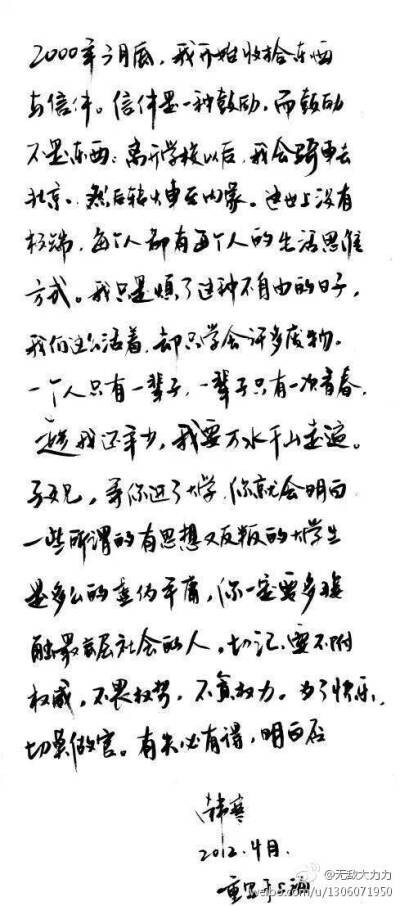 2000年3月底，我开始收拾东西
与信件。信件是一种鼓励，而鼓励
不是东西。离开学校以后，我会骑车去
北京。然后转火车至内蒙。这世上没有
极端，每个人都有每个人的生活思维
方式。我只是烦了这种不自由的日子，
我们这么活着，却只学会许多废物。
一个人只有一辈子，一辈子只有一次青春，
趁我还年少，我要万水千山走遍。
等你进了大学，你就会明白
一些所谓的有思想又反叛的大学生
是多么的虚伪平庸，你一定要多接
触最底层社会的人。切记，要不附
权威，不畏权势，不贪权力。为了快乐，
切莫做官。有失必有得，明白否
韩寒
2012.4月.
重写于上海
@无敌大力力
weibo.com/u/1306071950